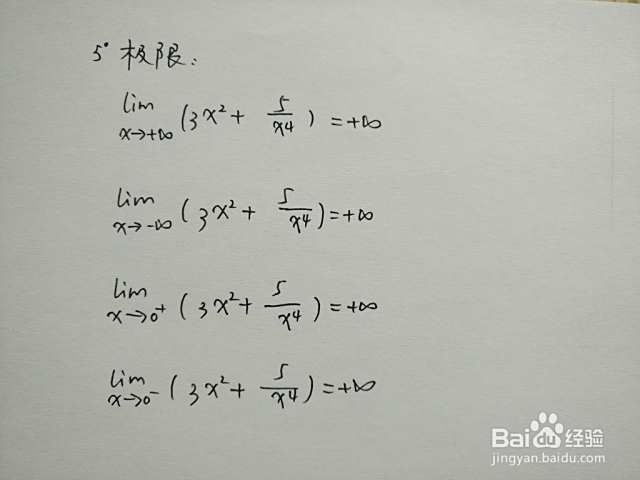 5° 极限:
lim x→+∞ (3x² + 5/x⁴) = +∞
lim x→-∞ (3x² + 5/x⁴) = +∞
lim x→0⁺ (3x² + 5/x⁴) = +∞
lim x→0⁻ (3x² + 5/x⁴) = +∞
Baidu经验
jingyan.baidu.com